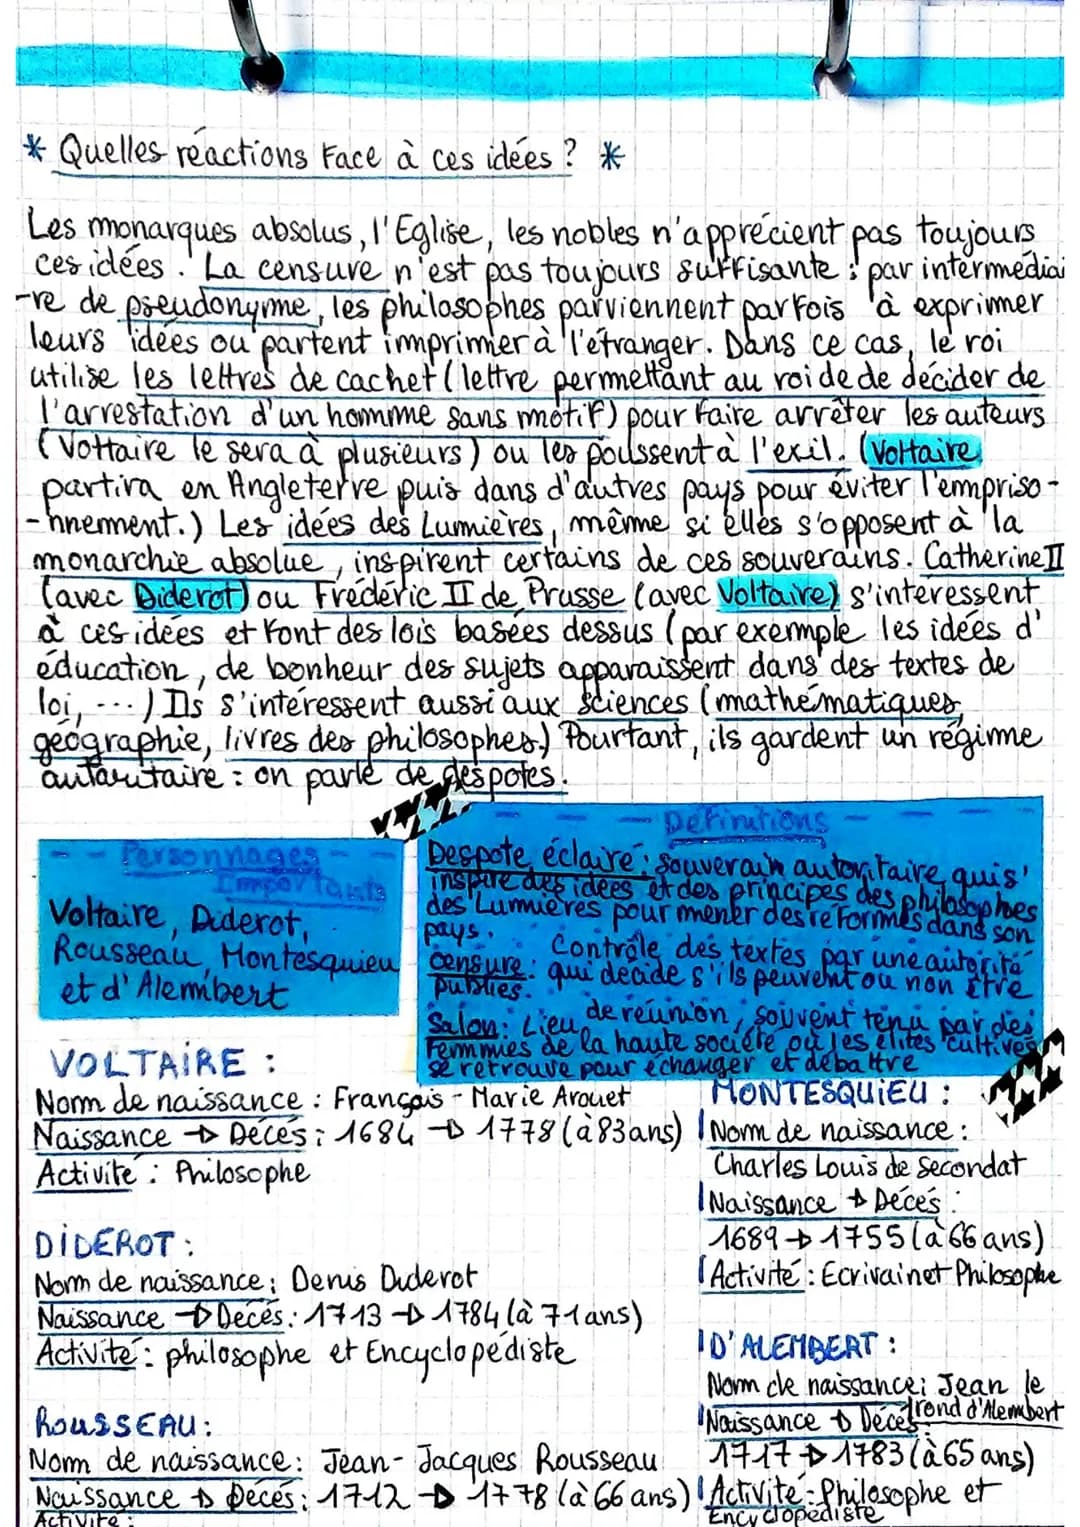 * Quelles réactions face à ces idées ? *
Les monarques absolus, l'Eglise, les nobles n'apprécient pas toujours
ces idées. La censure n'est pas toujours suffisante : par intermédiai
-re de pseudonyme, les philosophes parviennent parfois à exprimer
leurs idées ou partent imprimer à l'étranger. Dans ce cas, le roi
utilise les lettres de cachet (lettre permettant au roi de de décider de
l'arrestation d'un homme sans motif) pour faire arrêter les auteurs
(Voltaire le sera à plusieurs) ou les poussent à l'exil. (Voltaire
partira en Angleterre puis dans d'autres pays pour éviter l'empriso-
-nnement.) Les idées des Lumières, même si elles s'opposent à la
monarchie absolue, inspirent certains de ces souverains. Catherine II
(avec Diderot) ou Frédéric II de Prusse (avec Voltaire) s'interessent
à ces idées et font des lois basées dessus (par exemple les idées d'
éducation, de bonheur des sujets apparaissent dans des textes de
loi, ...) Ils s'intéressent aussi aux sciences (mathématiques,
géographie, livres des philosophes.) Pourtant, ils gardent un régime
autaritaire : on parle de despotes.
-- Personnages -
Importants
Voltaire, Diderot,
Rousseau, Montesquieu
et d'Alembert
- - - Définitions - - -
Despote éclairé : souverain autoritaire qui s'
inspire des idées et des principes des philosophes
des Lumières pour mener des reformes dans son
pays.
Censure : Contrôle des textes par une autorité
qui décide s'ils peuvent ou non être
publiés.
Salon : Lieu de réunion, souvent tenu par des
femmes de la haute société où les élites cultivés
se retrouve pour échanger et débattre
VOLTAIRE :
Nom de naissance : François-Marie Arouet
Naissance → Décès : 1684 → 1778 (à 83 ans)
Activité : Philosophe
DIDEROT :
Nom de naissance : Denis Diderot
Naissance → Décès : 1713 → 1784 (à 71 ans)
Activité : philosophe et Encyclopédiste
ROUSSEAU :
Nom de naissance : Jean-Jacques Rousseau
Naissance → Décès : 1712 → 1778 (à 66 ans)
Activité :
MONTESQUIEU :
Nom de naissance :
Charles Louis de Secondat
Naissance → Décès :
1689 → 1755 (à 66 ans)
Activité : Ecrivain et Philosophe
D'ALEMBERT :
Nom de naissance : Jean le
rond d'Alembert
Naissance → Décès :
1717 → 1783 (à 65 ans)
Activité : Philosophe et
Encyclopédiste